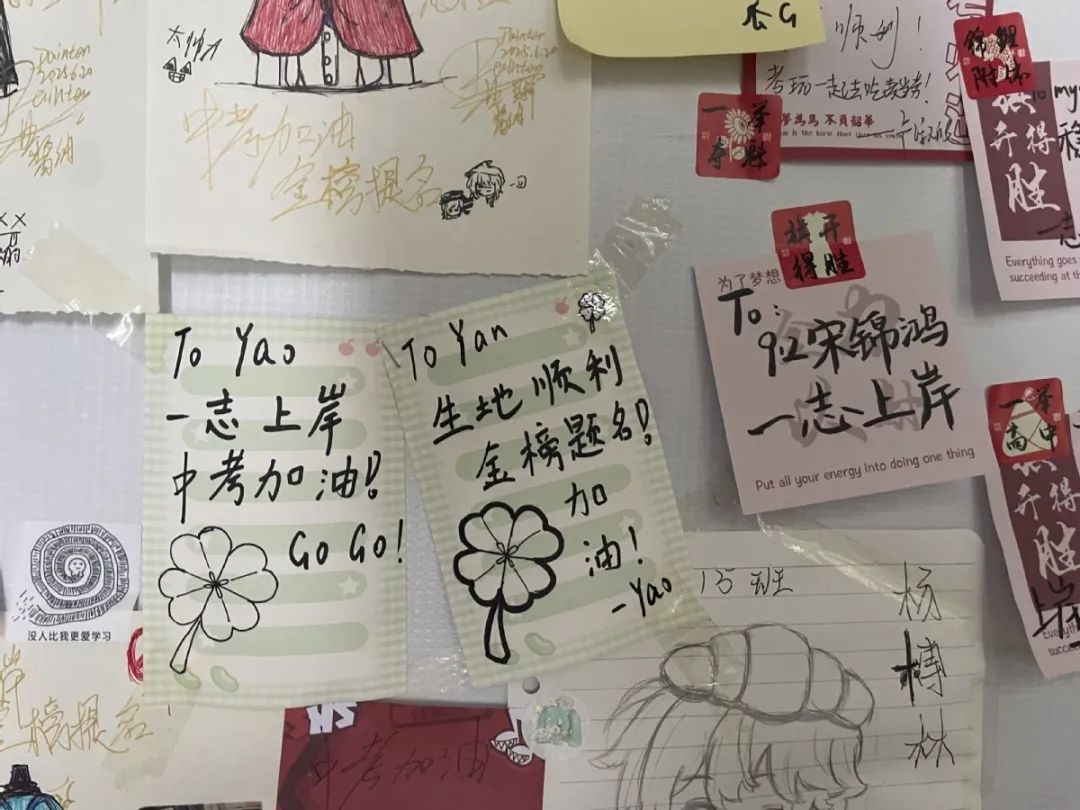 Painter
2025.6.20
中考加油
金榜提名
Painter
2025.6.20
顺利！
考玩一起去吃卖券！
一举
夺魁
锦鲤
附体
升得
胜
Everything goes
succeeding at the
旗开
得胜
为了梦想
To:
912宋锦鸿
一志上岸
Put all your energy into doing one thing
To Yao
一志上岸
中考加油！
Go Go!
To Yan
生地顺利
金榜题名！
加
油！
-Yao
一举
高中
升得
胜
没人比我更爱学习
15班
杨
博
林
岸
金榜提名
中考加油